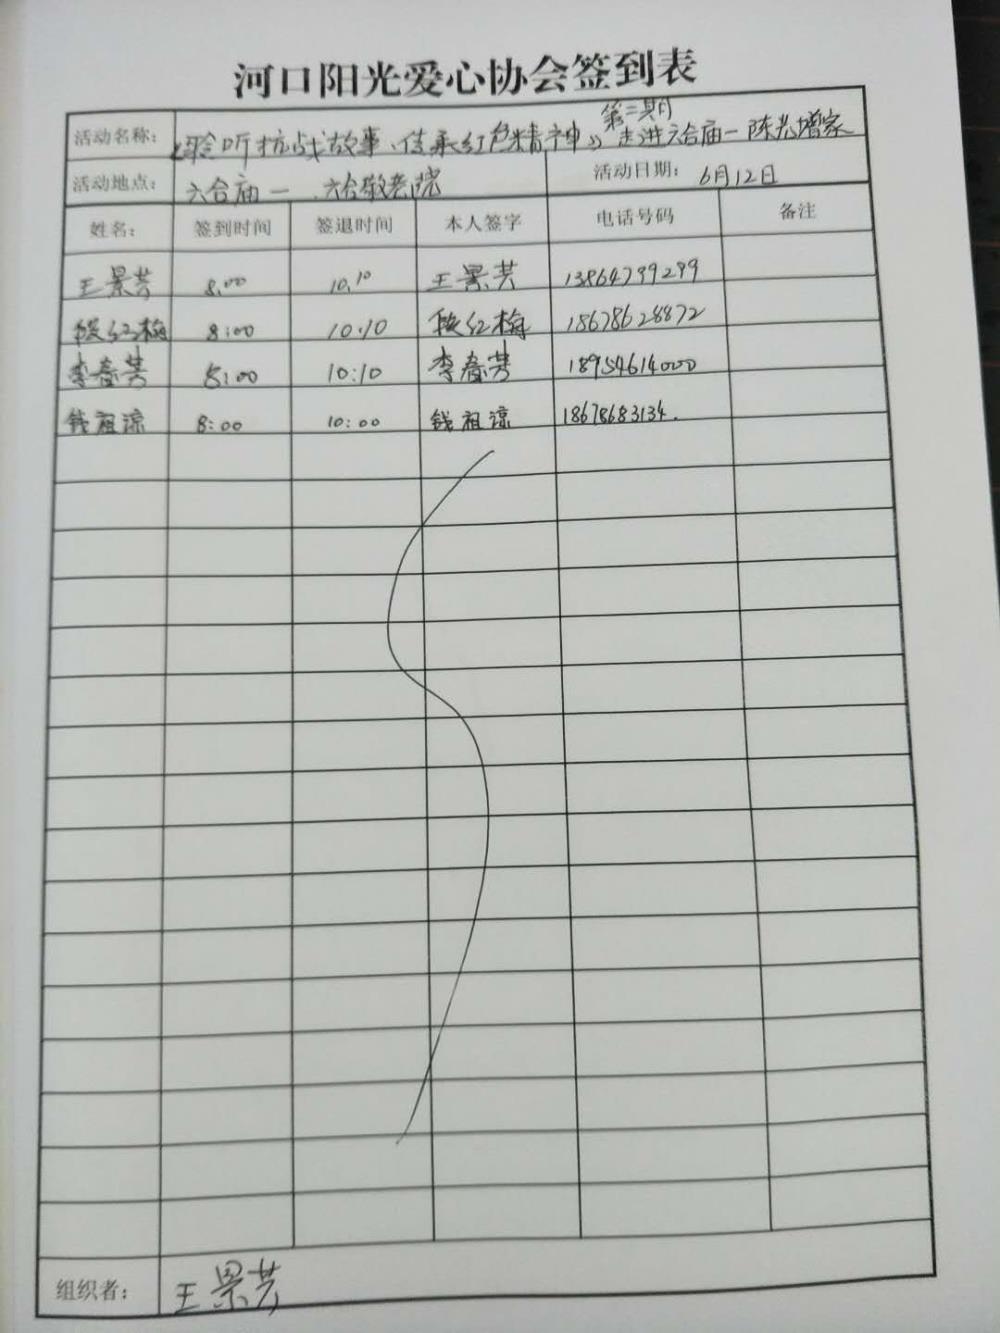 河口阳光爱心协会签到表
第二期
活动名称: 《聆听抗战故事、传承红色精神》走进六合庙一陈光增家
活动地点: 六合庙一 六合敬老院 活动日期: 6月12日
姓名: 签到时间 签退时间 本人签字 电话号码 备注
王景芸 8.00 10.10 王景芸 13864799299
段红梅 8:00 10:10 段红梅 18678628872
李春芳 8:00 10:10 李春芳 18954614000
钱祖谅 8:00 10:00 钱祖谅 18678683134.
组织者: 王景芸